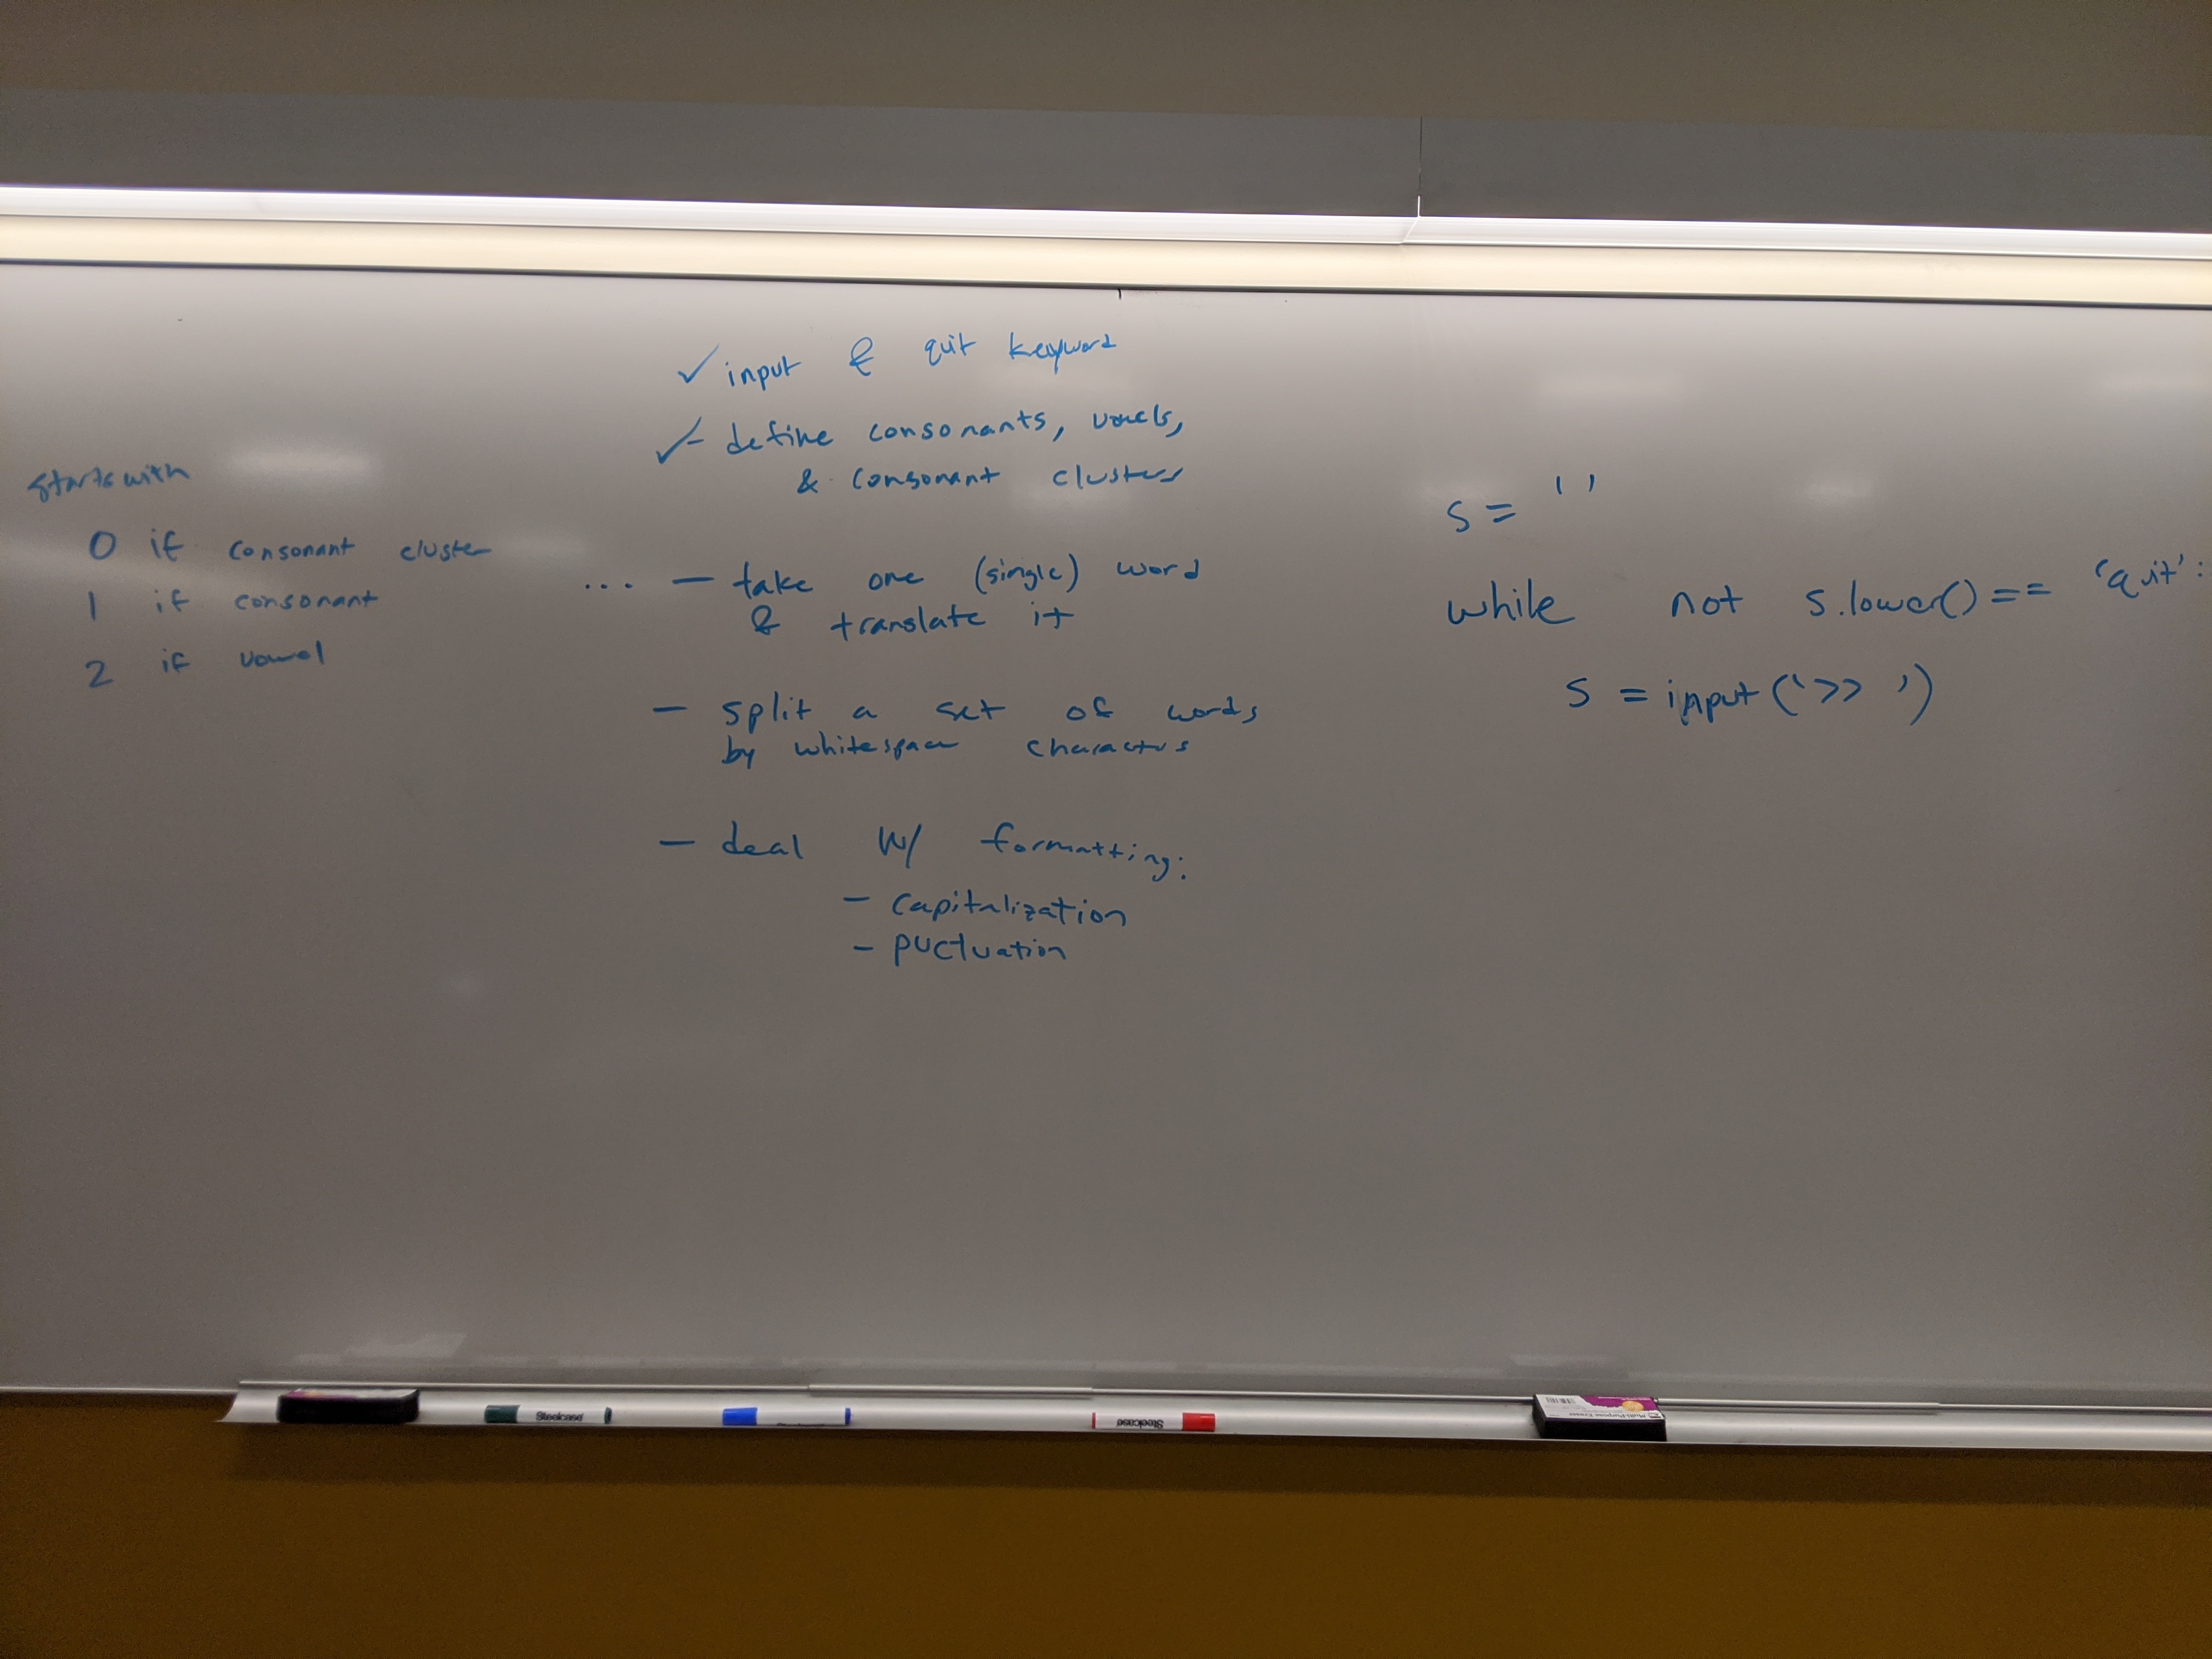 startswith
0 if consonant cluster
1 if consonant
2 if vowel
✓ input & quit keyword
✓ - define consonants, vowels,
& consonant clusters
... — take one (single) word
& translate it
— split a set of words
by whitespace characters
— deal w/ formatting:
— capitalization
— puctuation
s = ' '
while not s.lower() == 'quit':
s = input('>> ')
Steelcase
Steelcase